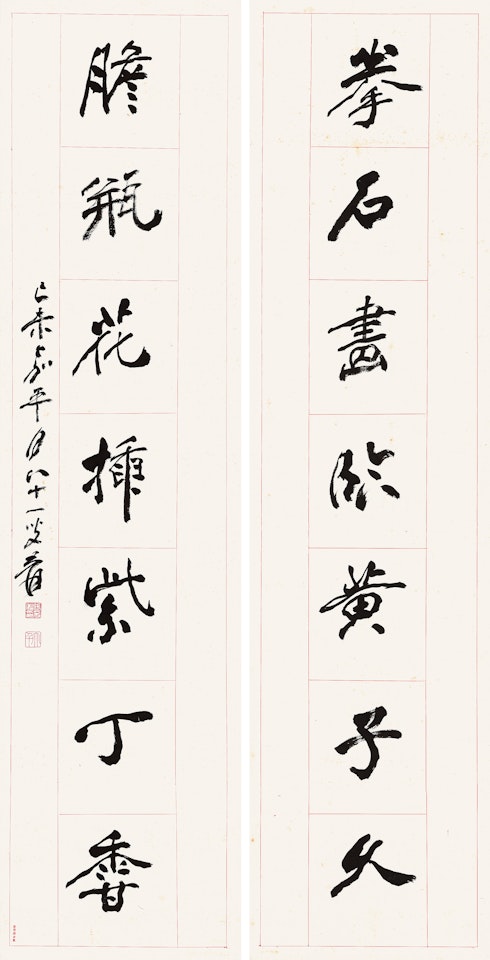 拳石畫臨黃子久
膽瓶花插紫丁香
己未嘉平月八十一叟爰